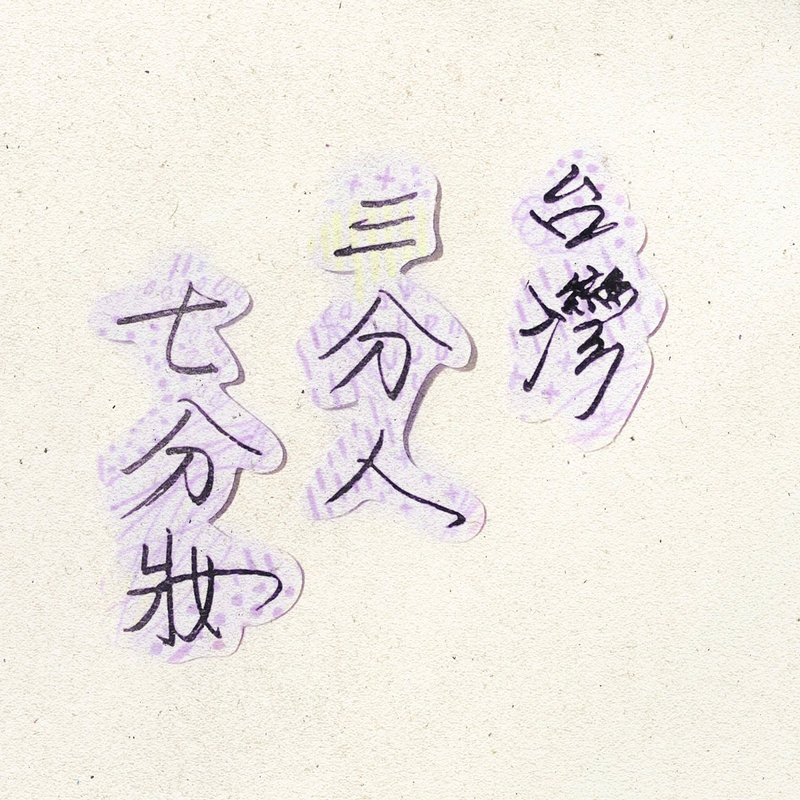 台灣
三分人
七分妝